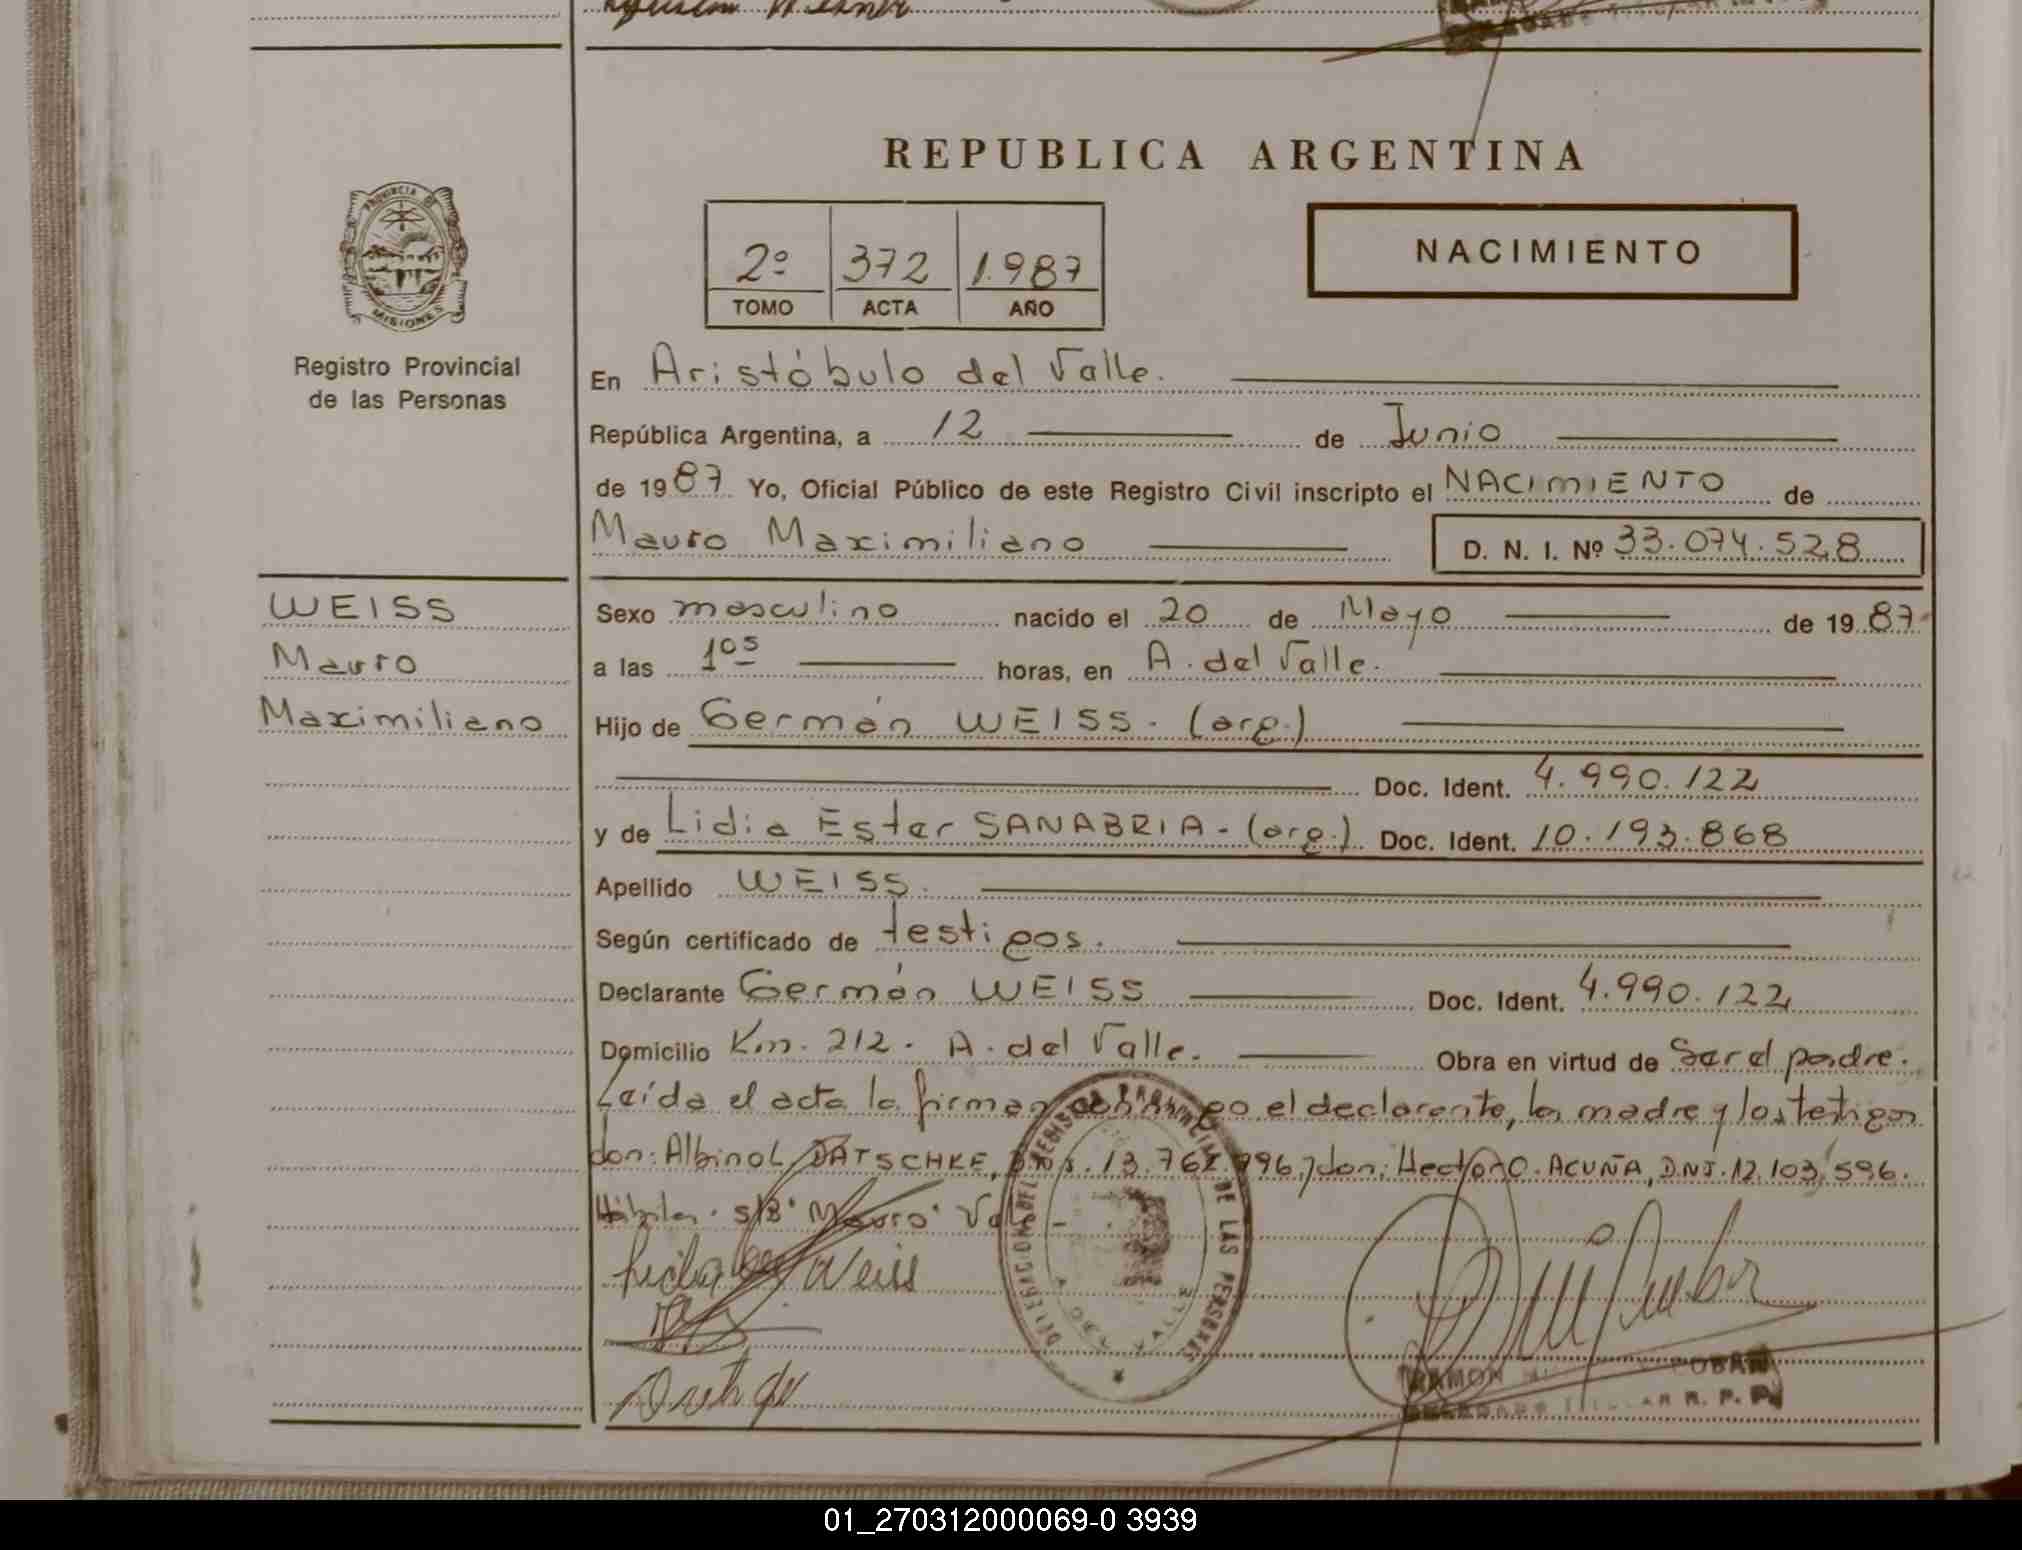 REPUBLICA ARGENTINA
PROVINCIA DE
MISIONES
Registro Provincial
de las Personas
2º 372 1.987
TOMO ACTA AÑO
NACIMIENTO
En Aristóbulo del Valle.
República Argentina, a 12 de Junio
de 1987 Yo, Oficial Público de este Registro Civil inscripto el NACIMIENTO de
Mauro Maximiliano D. N. I. Nº 33.074.528
WEISS
Mauro
Maximiliano
Sexo masculino nacido el 20 de Mayo de 1987
a las 1ºˢ horas, en A. del Valle.
Hijo de Germán WEISS. (arg.)
Doc. Ident. 4.990.122
y de Lidia Ester SANABRIA - (arg.) Doc. Ident. 10.193.868
Apellido WEISS.
Según certificado de testigos.
Declarante Germán WEISS Doc. Ident. 4.990.122
Domicilio Km. 212. A. del Valle. Obra en virtud de Ser el padre.
Leída el acta la firman conmigo el declarante, la madre y los testigos
don: Albino L. DATSCHKE, D.N.I. 13.762.996, y don: Hector O. ACUÑA, D.N.I. 12.103.596.
Hábiles. s/B "Mauro" Vale
Weiss
DELEGACION DEL REGISTRO PROVINCIAL DE LAS PERSONAS
A. DEL VALLE
RAMON
DELEGADO TITULAR R. P. P.
01_270312000069-0 3939